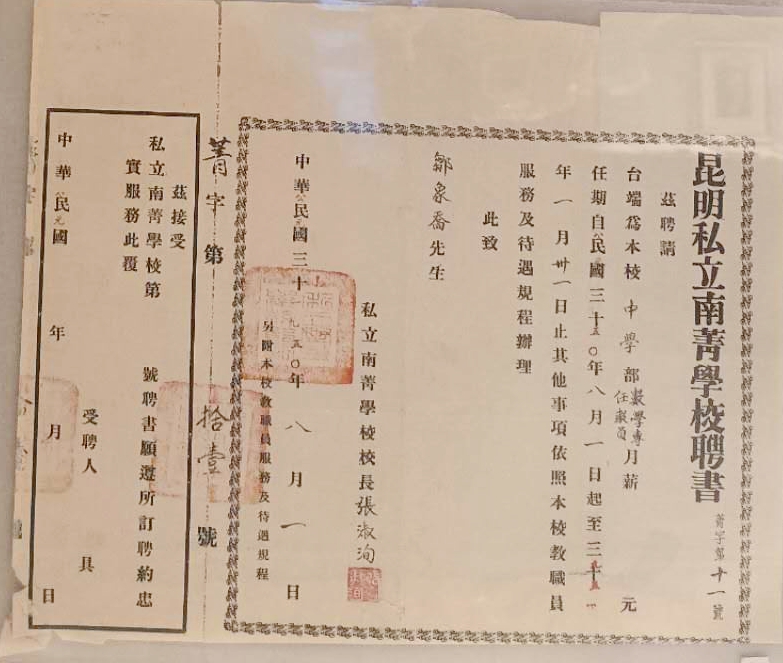 昆明私立南菁學校聘書
菁字第十一號
茲聘請
台端爲本校中學部數學專任教員月薪 元
任期自公民國三十五〇年八月一日起至三十五一
年一月卅一日止其他事項依照本校教職員
服務及待遇規程辦理
此致
鄒象喬先生
私立南菁學校校長張淑洵
中華公民元國三十九五〇年八月一日
另附本校教職員服務及待遇規程
菁字第拾壹號
茲接受
私立南菁學校第 號聘書願遵所訂聘約忠
實服務此覆
受聘人 具
中華公民元國 年 月 日